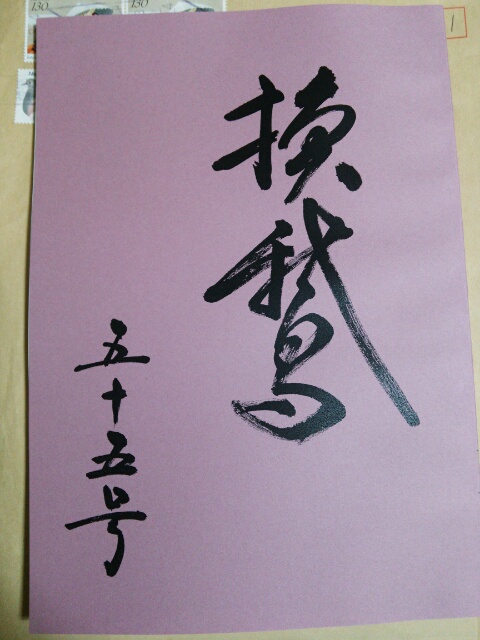 換鵞
五十五号
130
130
1